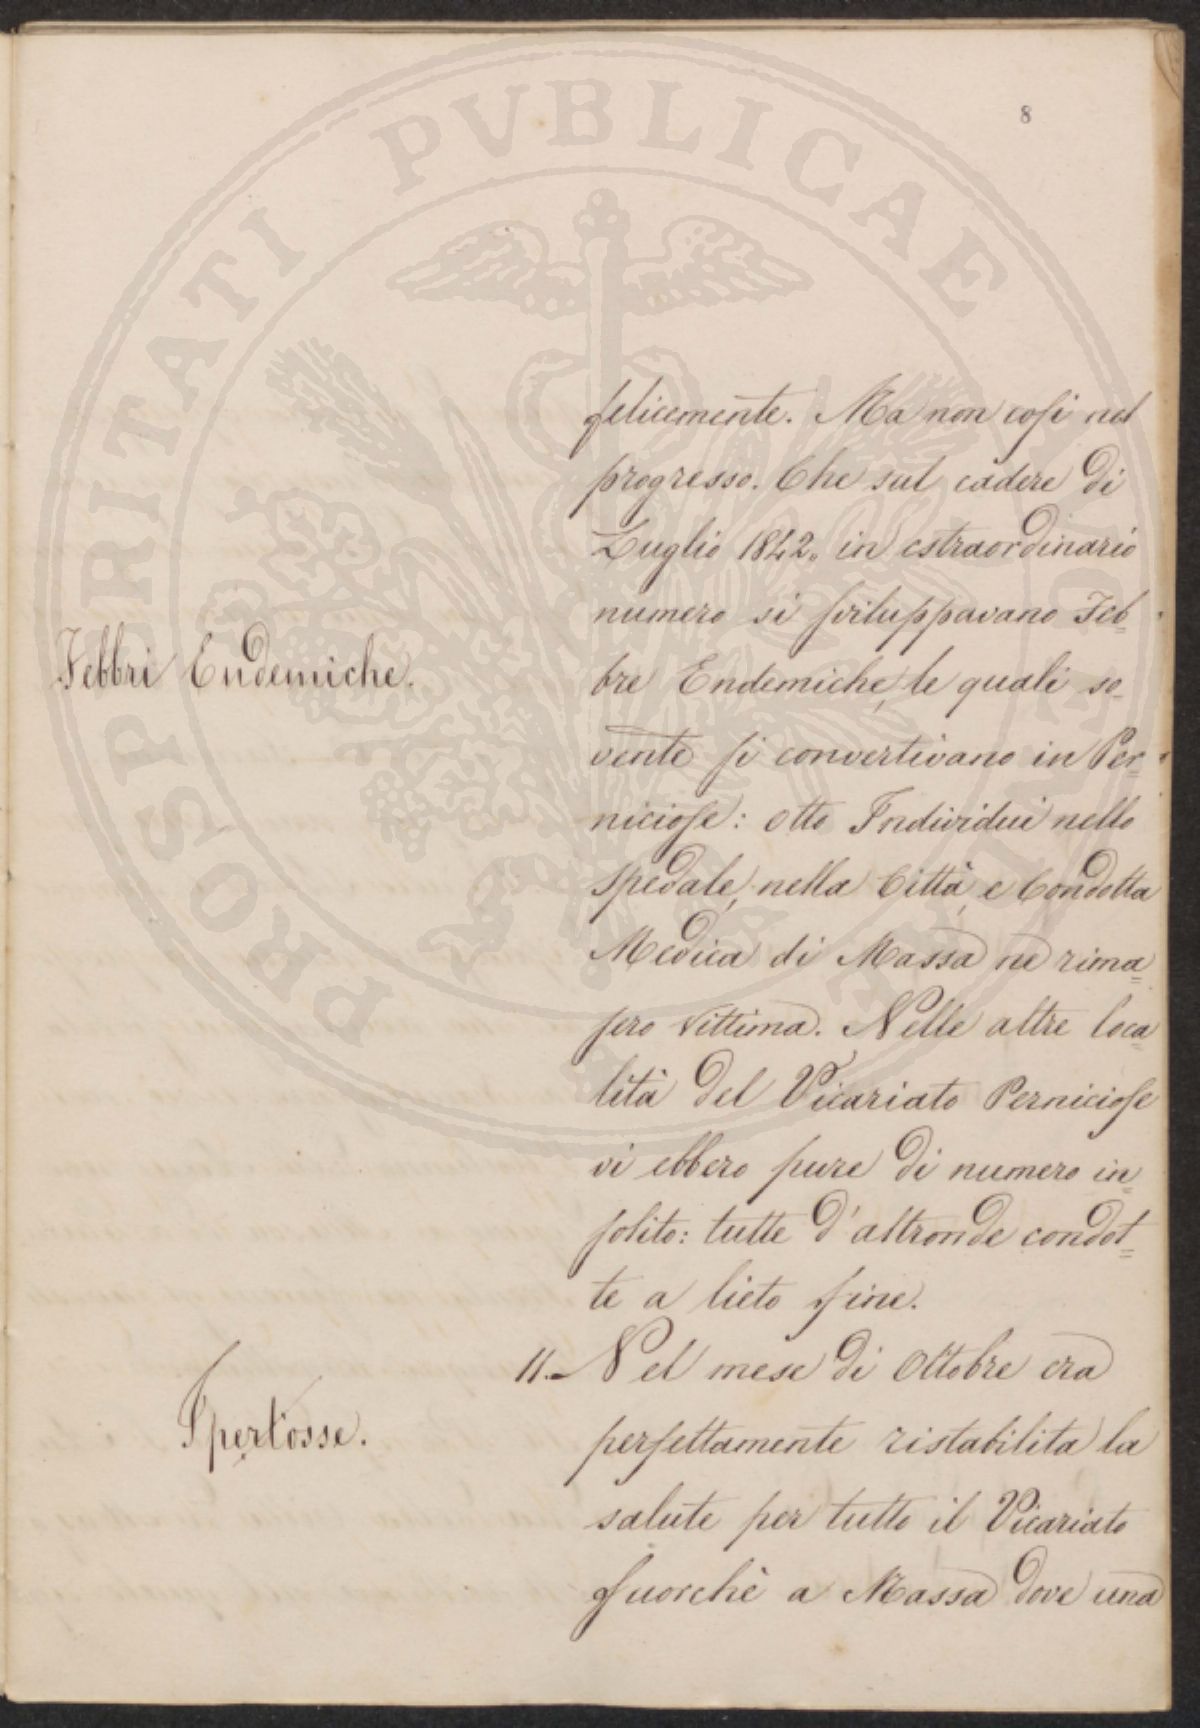 8
felicemente. Ma non così nel
progresso. Che sul cadere di
Luglio 1842. in estraordinario
numero si sviluppavano Feb=
Febbri Endemiche.
bre Endemiche, le quali so=
vente si convertivano in Per=
niciose: otto Individui nello
spedale, nella Città, e Condotta
Medica di Massa ne rima=
sero vittima. Nelle altre loca=
lità del Vicariato Perniciose
vi ebbero pure di numero in=
solito: tutte d'altronde condot=
te a lieto fine.
11.- Nel mese di Ottobre era
Ipertosse.
perfettamente ristabilita la
salute per tutto il Vicariato
fuorchè a Massa dove una
PROSPERITATI PVBLICAE